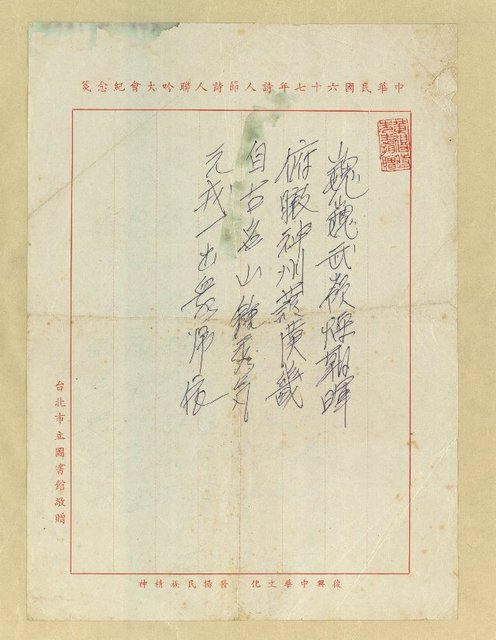 中華民國六十七年詩人節詩人聯吟大會紀念箋
巍巍武嶺燦朝暉
俯瞰神州護漢畿
自古名山鍾秀氣
元戎一出眾師依
復興中華文化 發揚民族精神
台北市立圖書館敬贈